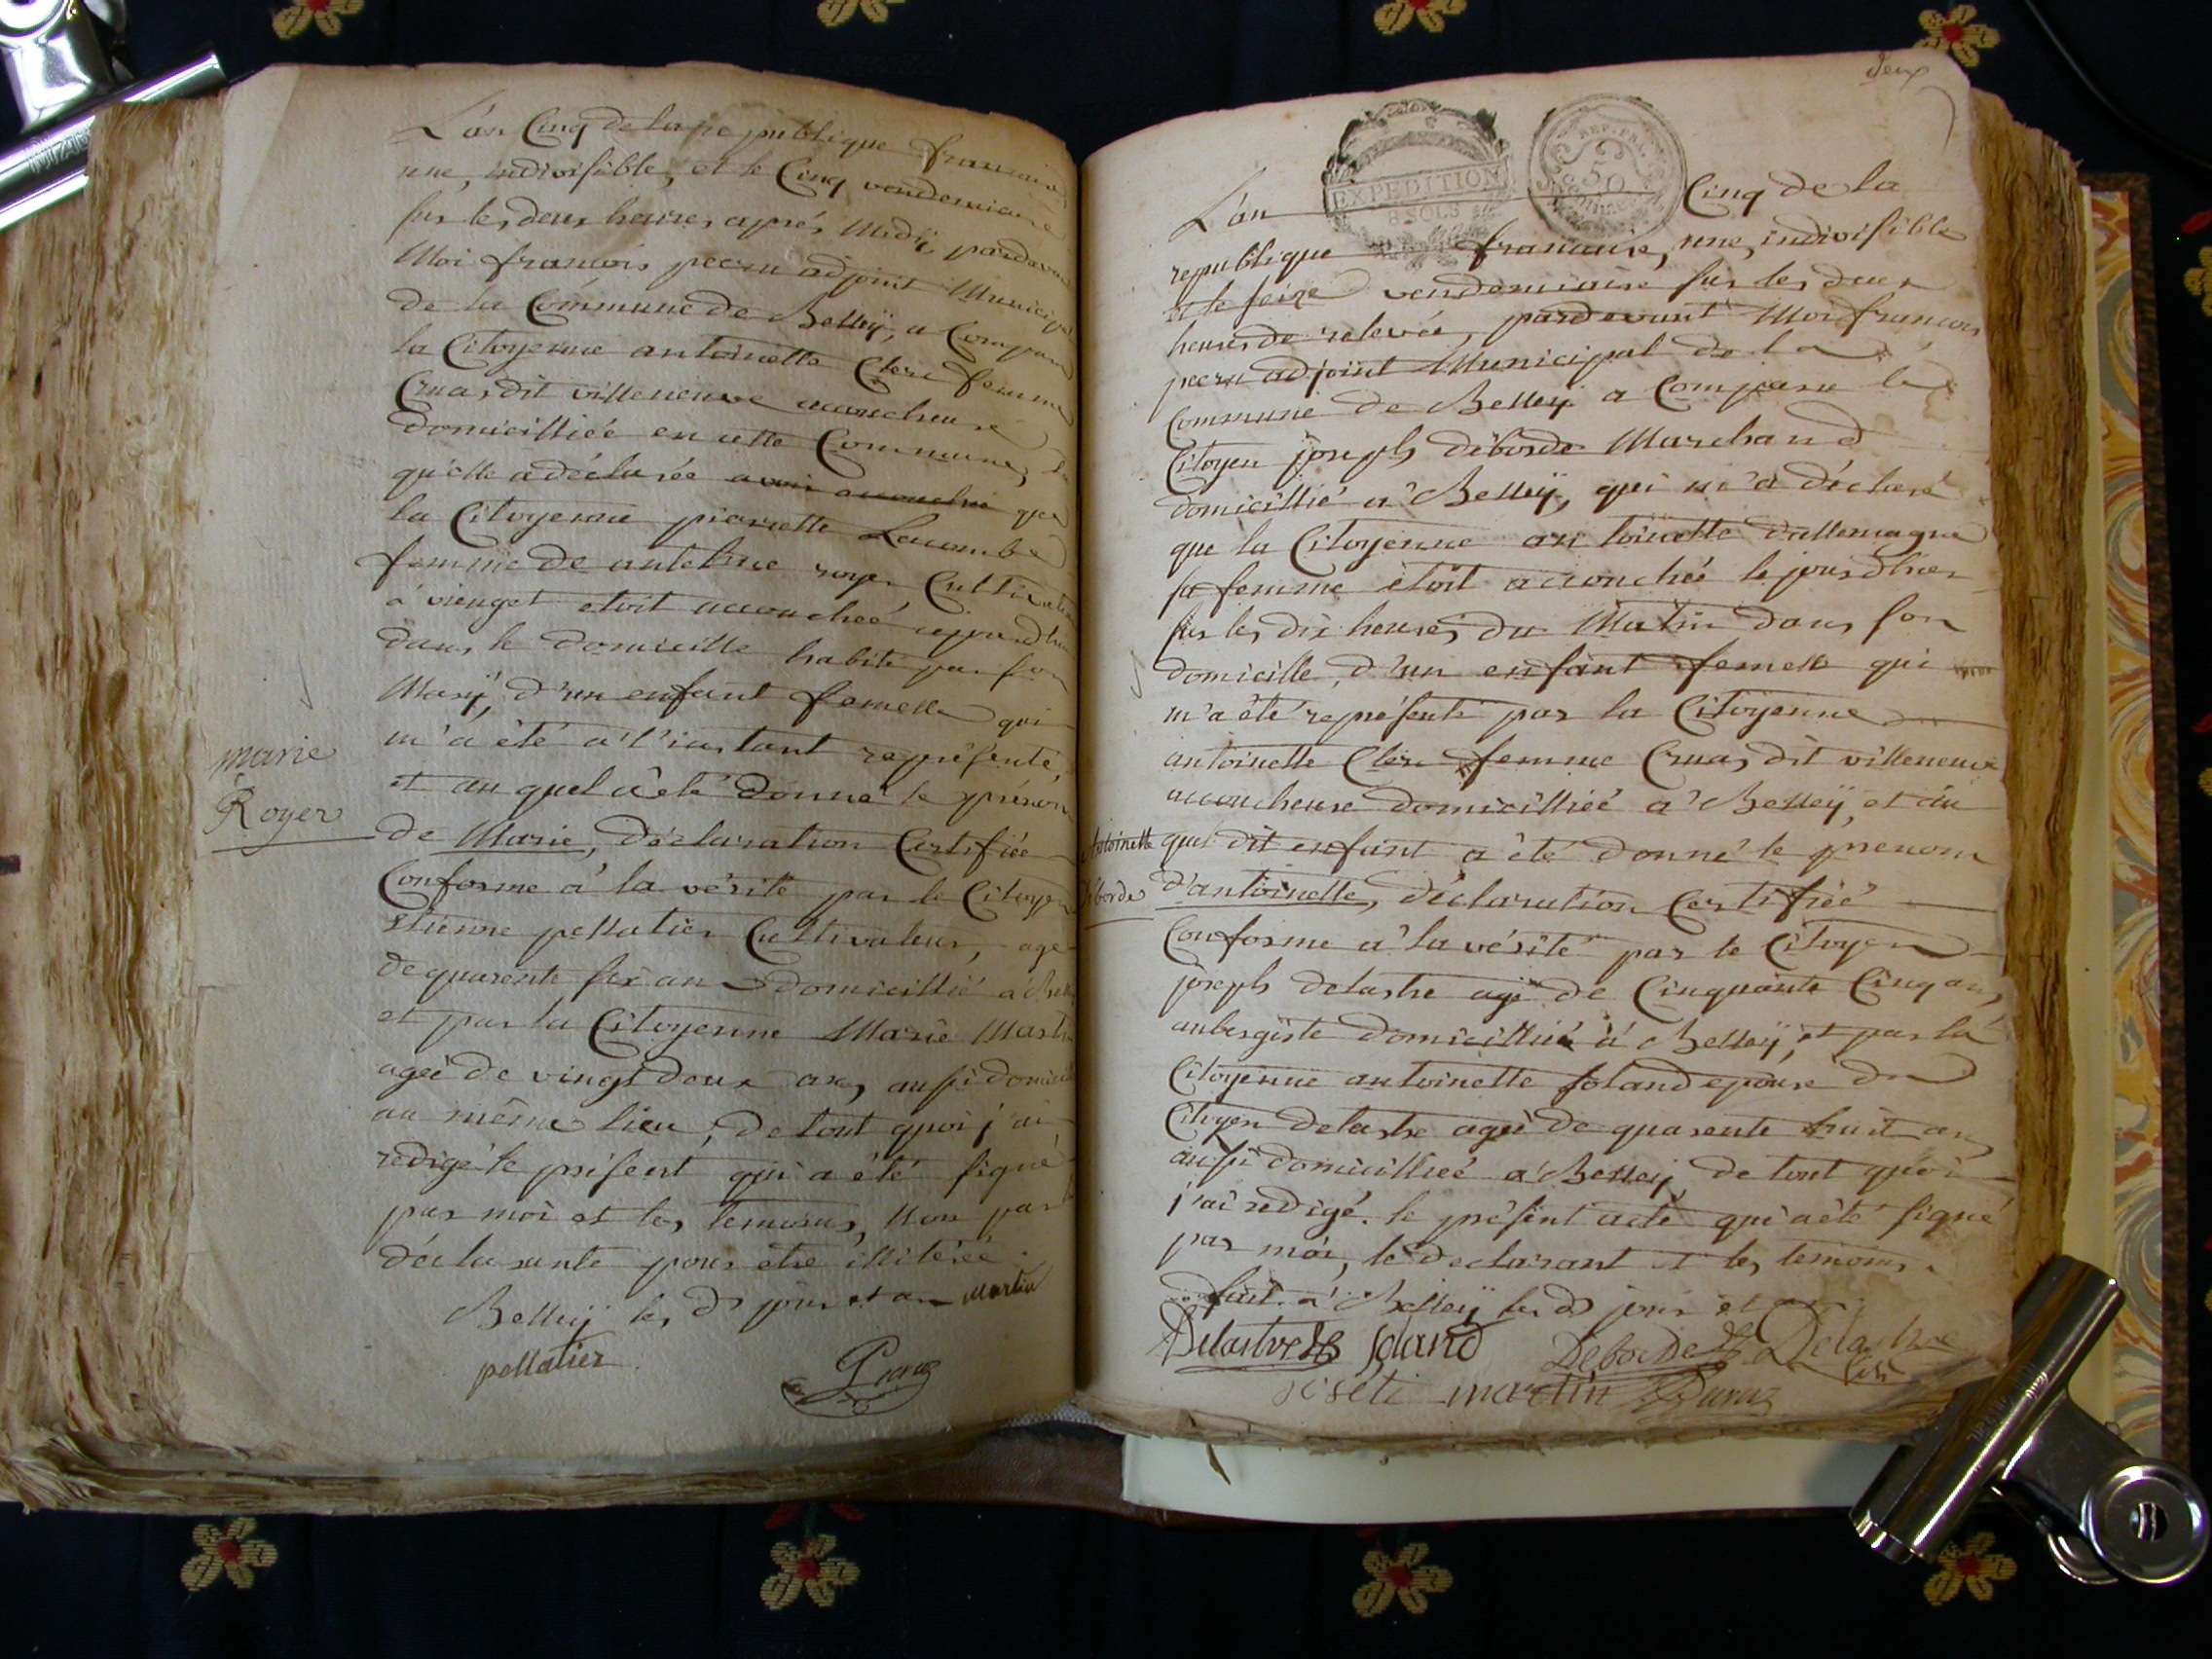 L'an Cinq de la republique francaise
une, indivisible, et le Cinq vendemiaire
sur les deux heures aprés Midÿ, pardevant
Moi francois pecru adjoint Municipal
de la Commune de Belleÿ, a Comparu
la Citoyenne antoinette Clerc femme
Cruas dit villeneuve accoucheuse
domicilliée en cette Commune,
qu'elle a déclarée avoir accouchée que
la Citoyenne pierrette Lacombe
femme de antelme royer Cultivateur
a vieuget etoit accouchée
dans le domicille habité par son
Marÿ, d'un enfant femelle qui
m'a été a l'instant représenté,
et au quel a été donné le prénom
de Marie, déclaration Certifiée
Conforme a la vérité par le Citoyen
etienne pellatier Cultivateur, agé
de quarente six ans domicillié a Belleÿ
et par la Citoyenne Marie Martin
agée de vingt deux ans, aussi domicilliée
au même lieu, de tout quoi j'ai
redigé le présent qui a été signé
par moi et les temoins, Non par la
déclarante pour etre illitérée.
Belleÿ les d jour et an Martin
pellatier
marie
Royer
deux
EXPEDITION
8 SOLS
REP. FRA.
50
L'an Cinq de la
republique francaise, une, indivisible
et le seize vendemiaire sur les deux
heures de relevée, pardevant Moi francois
pecru adjoint Municipal de la
Commune de Belleÿ a Comparu le
Citoyen joseph déborde Marchand
domicillié a Belleÿ, qui m'a déclaré
que la Citoyenne antoinette dallemagne
sa femme étoit accouchée le jour d'hier
sur les dix heures du Matin dans son
domicille, d'un enfant femelle qui
m'a été représenté par la Citoÿenne
antoinette Clerc femme Cruas dit villeneuve
accoucheuse domicilliée a Belleÿ, et au
quel dit enfant a été donné le prenom
d'antoinette, déclaration Certifiée
Conforme a la vérité par le Citoyen
joseph delastre agé de Cinquante Cinq ans
aubergiste domicillié a Belleÿ, et par la
Citoyenne antoinette soland epouse du
Citoyen delastre agée de quarente huit ans
aussi domicilliée a Belleÿ, de tout quoi
j'ai redigé le présent acte qui a été signé
par moi, le declarant et les temoins.
fait a Belleÿ les d jour et an
Antoinette
déborde
Delastre soland Deborde Delastre
fils
martin